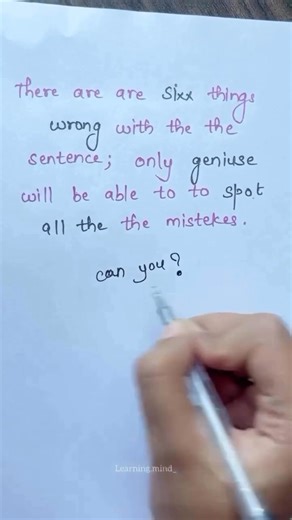 There are are sixx things
wrong with the the
sentence; only geniuse
will be able to to spot
all the the mistekes.
can you?
Learning.mind_